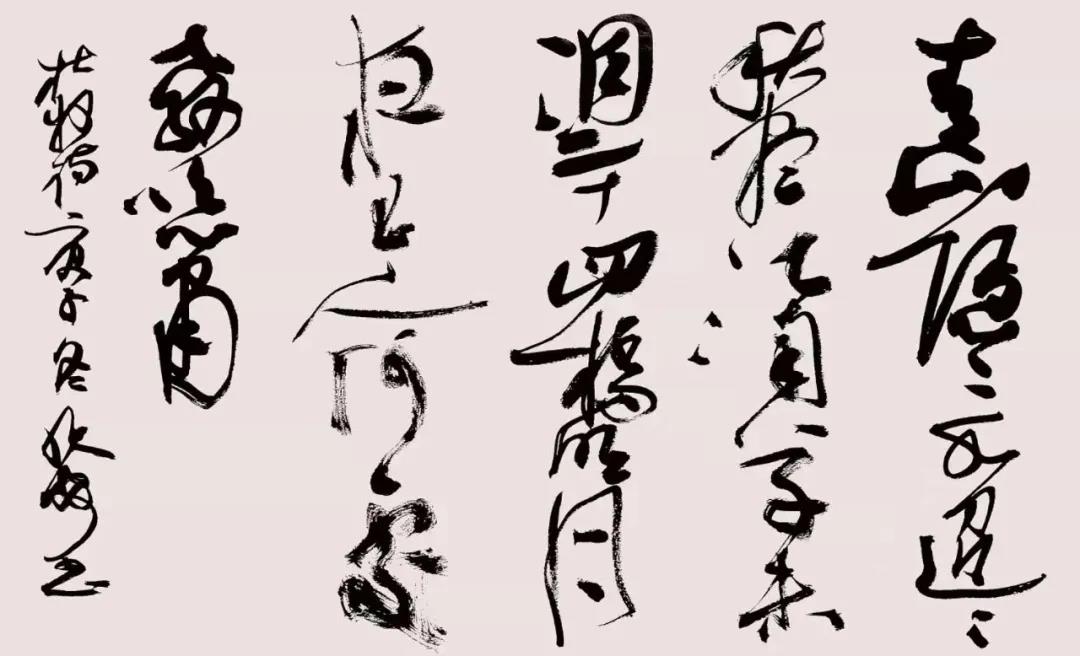 青山隱〻水迢〻
秋盡江南草未
凋二十四橋明月
夜玉人何處
教吹簫
杜牧詩庚子冬書